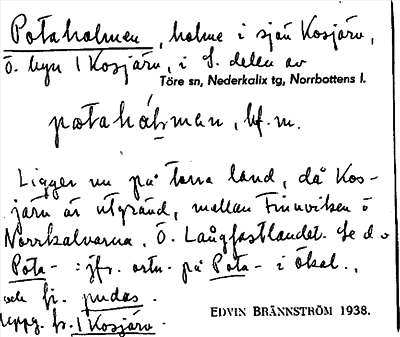 Potaholmen, holme i sjön Kosjärv,
ö. byn 1 Kosjärv, i S. delen av
Töre sn, Nederkalix tg, Norrbottens l.
pωtahǻɫman, bf. m.
Ligger nu på torra land, då Kos-
järv är utgrävd, mellan Finnviken o
Norrkalvarna, ö. Långfastlandet. Se d o
Pota- : jfr. ortn. på Pota- i Ökal.,
och fi. pudas.
Uppg. fr. 1 Kosjärv.
EDVIN BRÄNNSTRÖM 1938.